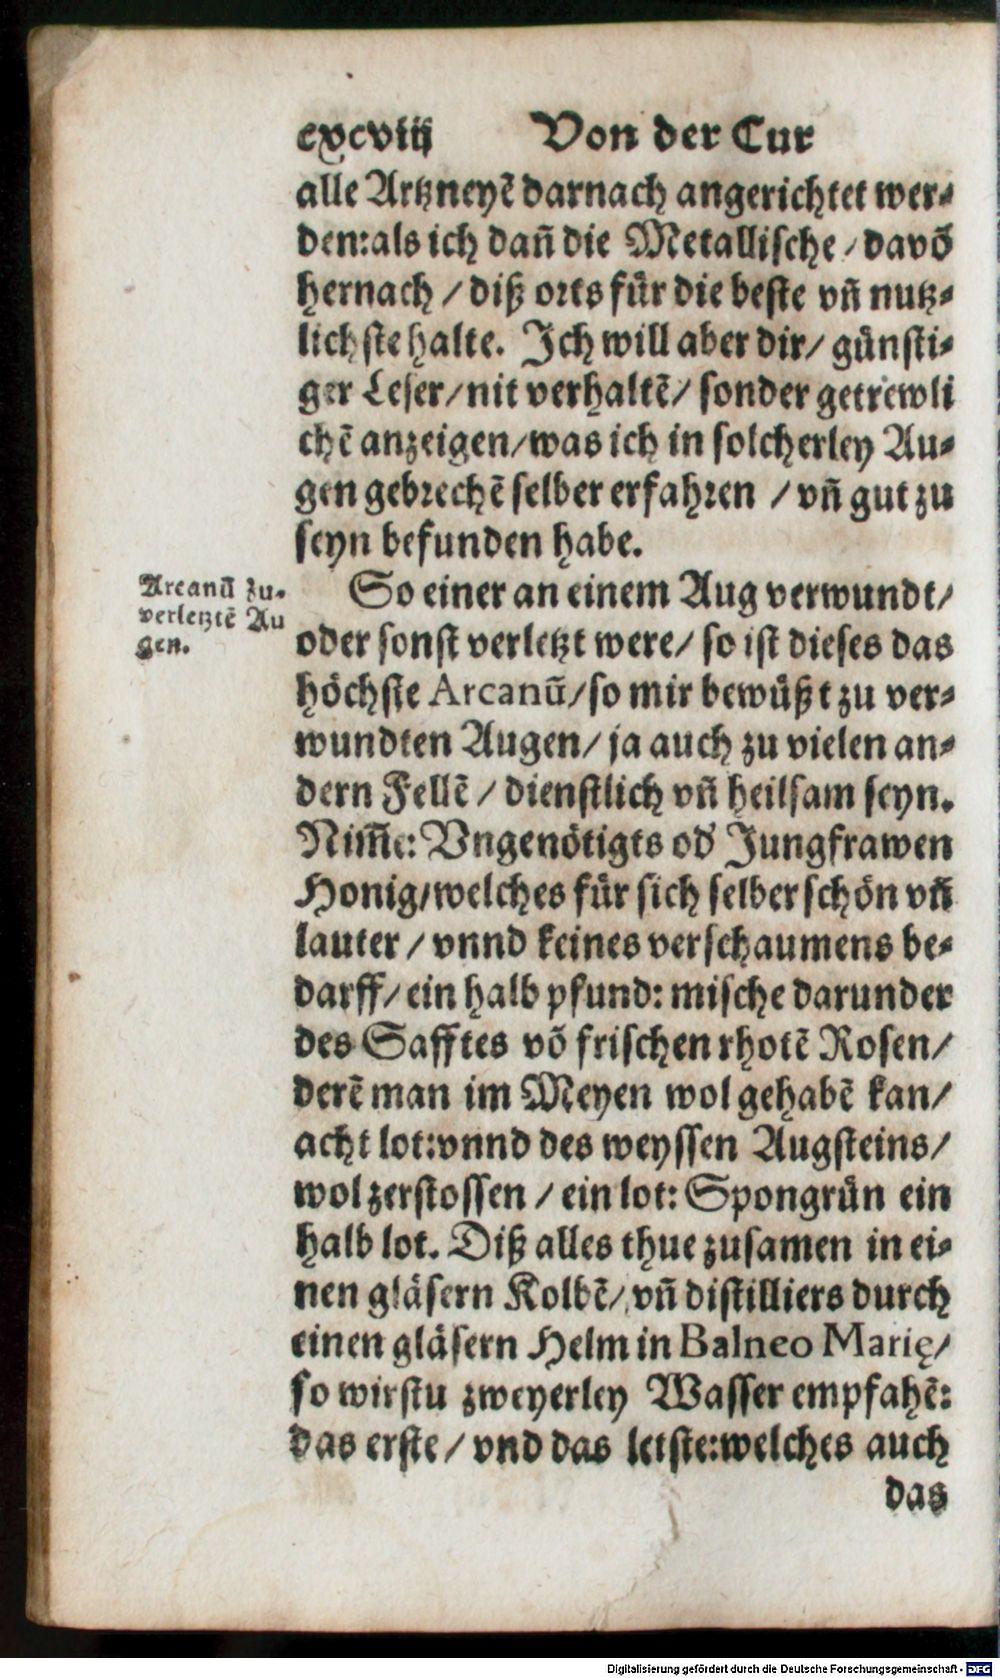 cxcviij Von der Cur
alle Artzneyē darnach angerichtet wer⸗
den:als ich dañ die Metallische / davõ
hernach / diß orts fůr die beste vñ nutz⸗
lichste halte. Ich will aber dir/ gůnsti⸗
ger Leser/nit verhaltē/ sonder getrewli
chē anzeigen/was ich in solcherley Au⸗
gen gebrechē selber erfahren / vñ gut zu
seyn befunden habe.
Arcanū zu⸗
verletztē Au
gen.
So einer an einem Aug verwundt/
oder sonst verletzt were/ so ist dieses das
hőchste Arcanū/so mir bewůßt zu ver⸗
wundten Augen/ ja auch zu vielen an⸗
dern Fellē / dienstlich vñ heilsam seyn.
Nim̄e: Vngenőtigts od' Jungfrawen
Honig/welches fůr sich selber schőn vñ
lauter / vnnd keines verschaumens be⸗
darff/ ein halb pfund: mische darunder
des Safftes võ frischen rhotē Rosen/
derē man im Meyen wol gehabē kan/
acht lot:vnnd des weyssen Augsteins/
wol zerstossen / ein lot: Spongrůn ein
halb lot. Diß alles thue zusamen in ei⸗
nen gläsern Kolbē/ vñ distilliers durch
einen gläsern Helm in Balneo Marię/
so wirstu zweyerley Wasser empfahē:
das erste / vnd das letste:welches auch
das
Digitalisierung gefördert durch die Deutsche Forschungsgemeinschaft - DFG